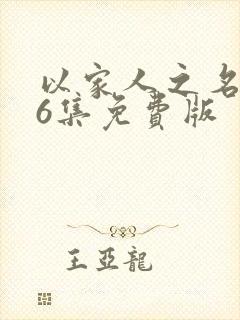 以家人之名
6集免費版
王亞龍